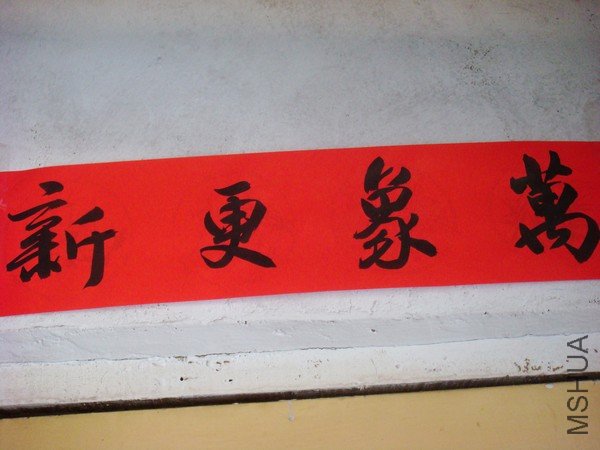 萬象更新
MSHUA